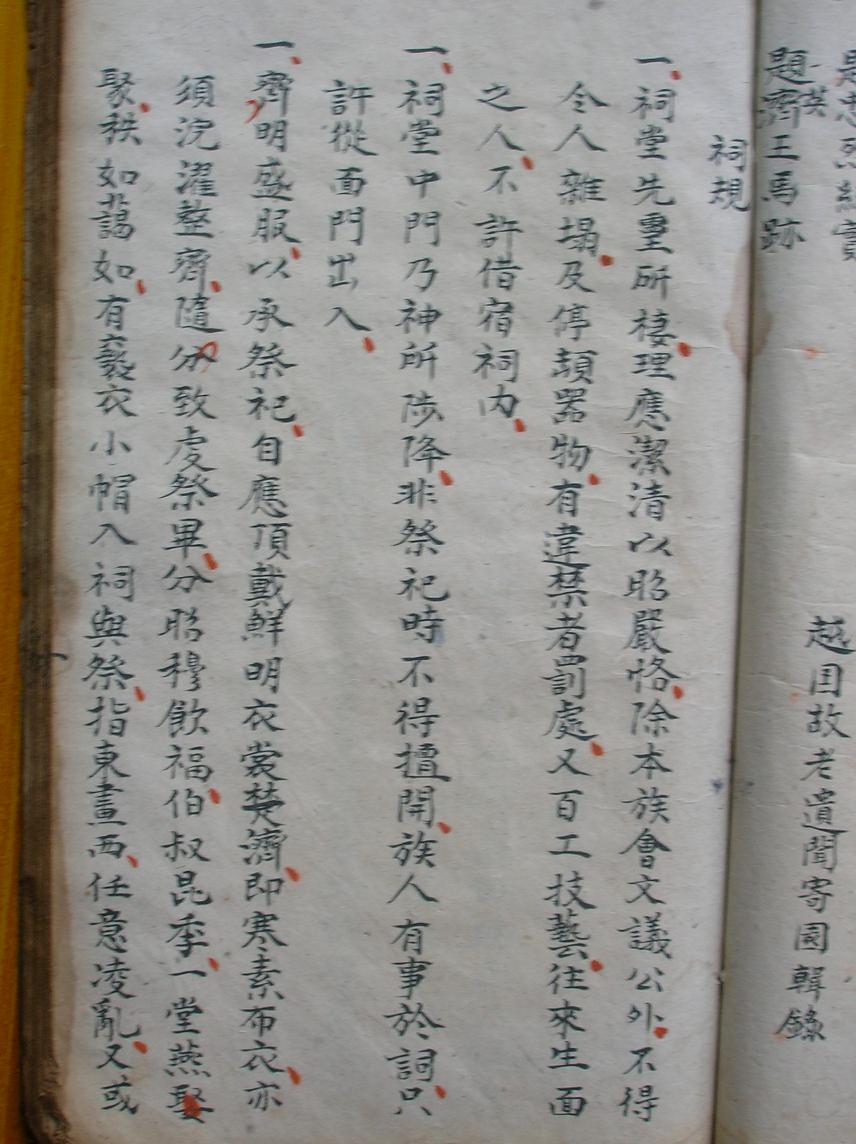 越国故老遺聞寄園輯錄
題濟王馬跡
祠規
一祠堂先靈所棲理應潔清以昭嚴恪除本族會文議公外不得
令人雜塌及停頡器物有違禁者罰處又百工技藝往來生面
之人不許借宿祠內
一祠堂中門乃神所陟降非祭祀時不得擅開族人有事於詞只
許從面門出入
一齊明盛服以承祭祀自應頂戴鮮明衣裳楚濟即寒素布衣亦
須浣濯整齊隨分致虔祭畢分昭穆飲福伯叔昆季一堂燕娶
聚秩如藹如有褻衣小帽入祠與祭指東畫西任意凌亂又或